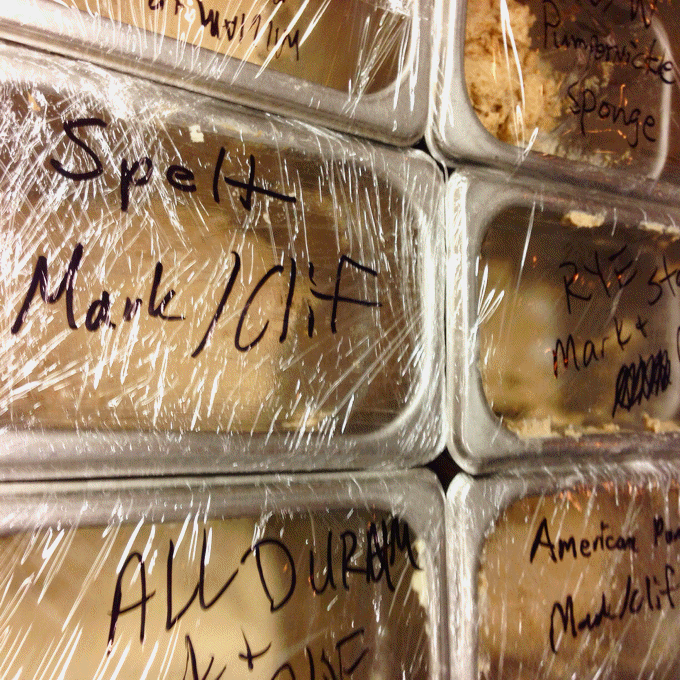 William
Pumpernicke
Sponge
Spelt
Mark/Clif
RYE
Mark +
ALL DURAM
American
Mark/Clif